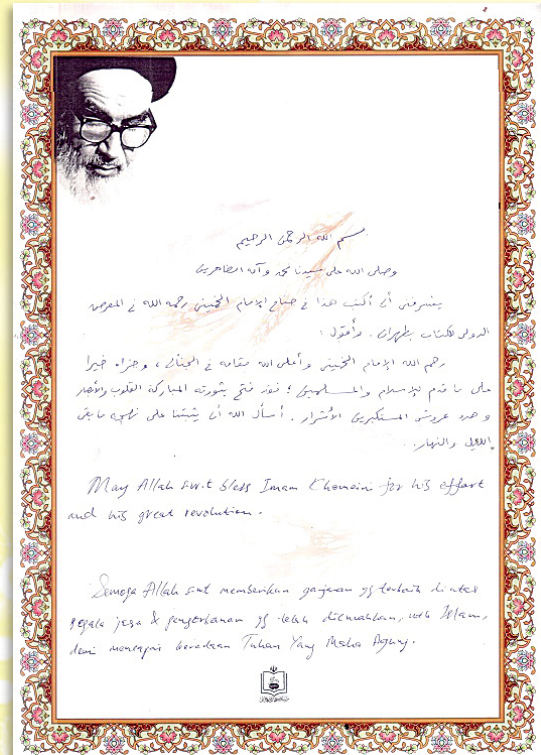 بسم الله الرحمن الرحيم
وصلى الله على سيدنا محمد وآله الطاهرين
يشرفني أن أكتب هذا في جناح الإمام الخميني رحمه الله في المعرض
الدولي للكتاب بطهران. وأقول:
رحم الله الإمام الخميني وأعلى الله مقامه في الجنان، وجزاه خيرا
على ما قدم للإسلام والمسلمين؛ فقد فتح بثورته المباركة القلوب والأبصار
وهدد عروش المستكبرين الأشرار. أسأل الله أن يثبتنا على نهجه ما بقي
الليل والنهار.
May Allah swt bless Imam Khomeini for his effort
and his great revolution.
Semoga Allah swt memberikan ganjaran yg terbaik diatas
segala jasa & pengorbanan yg telah dicurahkan, utk Islam,
demi mencapai keredaan Tuhan Yang Maha Agung.